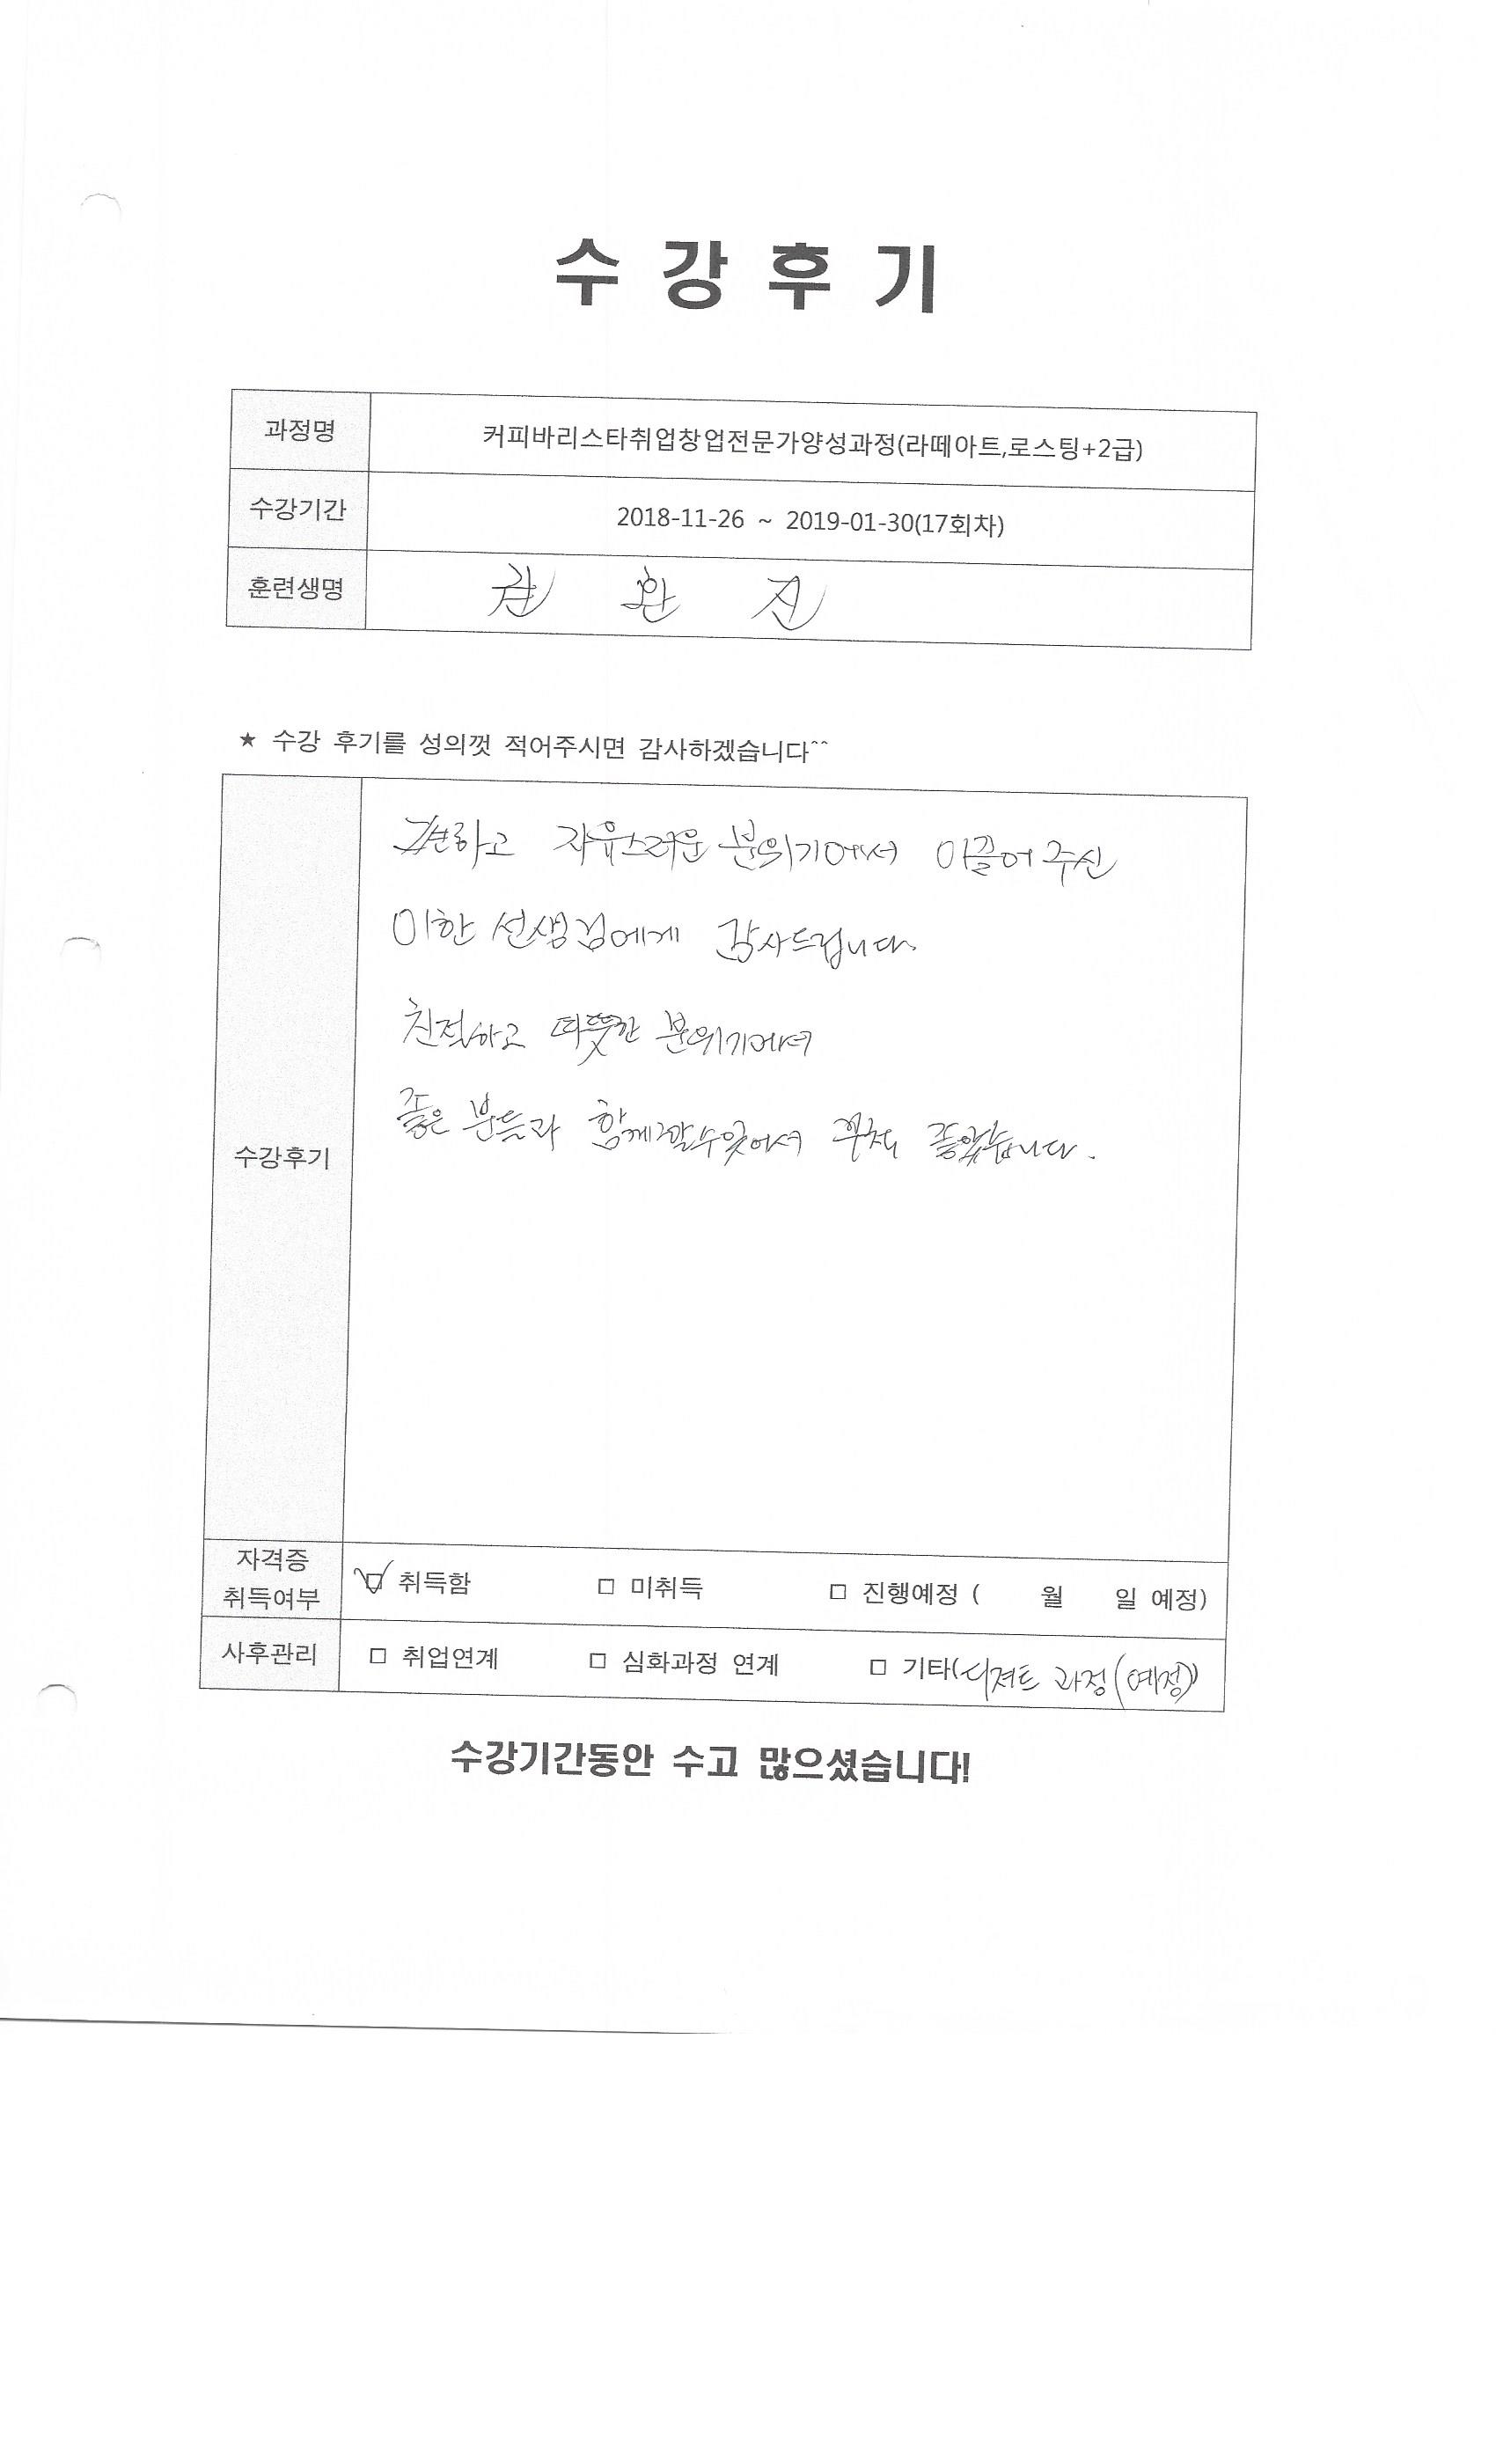 수 강 후 기
과정명 커피바리스타취업창업전문가양성과정(라떼아트,로스팅+2급)
수강기간 2018-11-26 ~ 2019-01-30(17회차)
훈련생명 환 진
★ 수강 후기를 성의껏 적어주시면 감사하겠습니다^^
수강후기
편하고 자유스러운 분위기에서 이끌어 주신
이한 선생님에게 감사드립니다.
친절하고 따뜻한 분위기에서
좋은 분들과 함께 할수있어서 좋았습니다.
자격증
취득여부
☑ 취득함 □ 미취득 □ 진행예정 ( 월 일 예정)
사후관리 □ 취업연계 □ 심화과정 연계 □ 기타(디져트 과정(예정))
수강기간동안 수고 많으셨습니다!